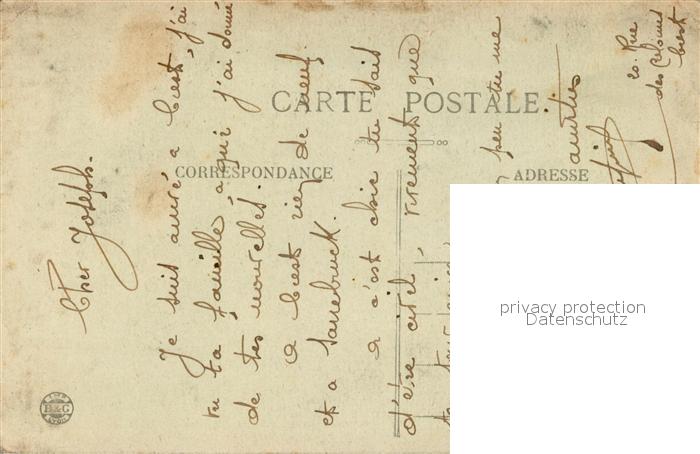 CARTE POSTALE
CORRESPONDANCE
ADRESSE
Cher Joseph.
Je suis arrivé a Brest, j'ai
vu ta famille, a qui j'ai donné
de tes nouvelles.
a Brest rien de neuf.
et a Sarrebruck.
a c'est chic tu sais
d'être civil, vivement que
peu tu me
amitiés
20. Rue
des Colonies
Brest
B&G
LYON
privacy protection
Datenschutz